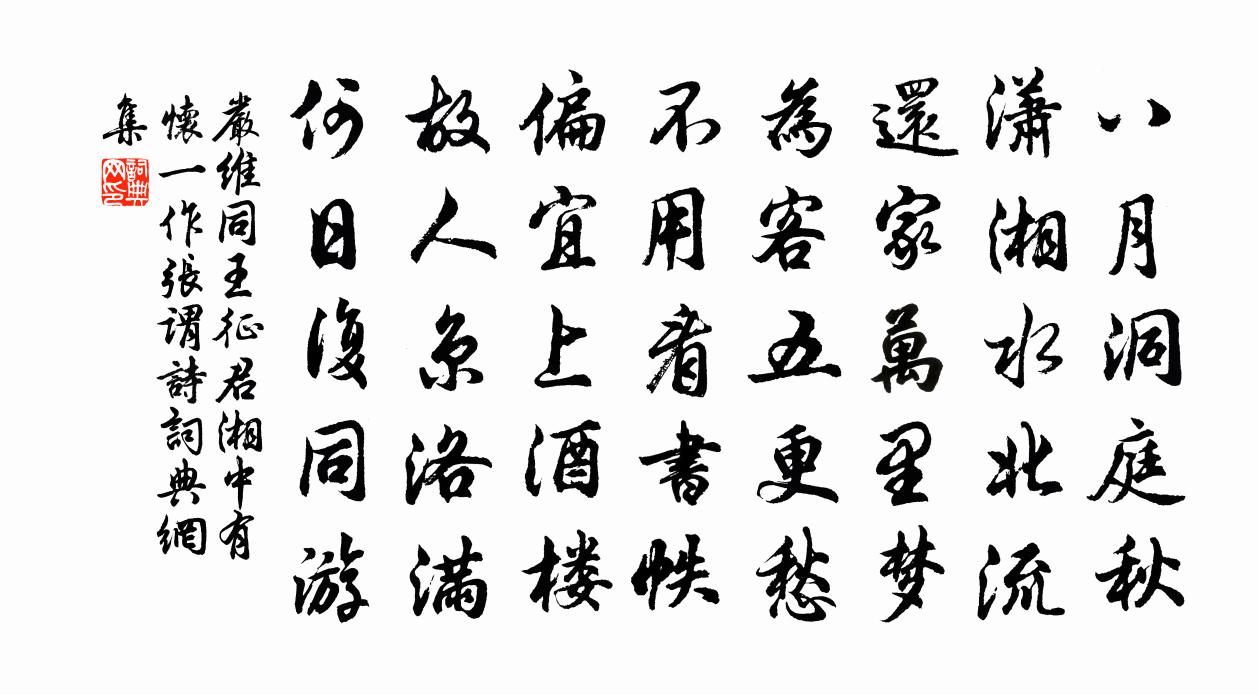 八月洞庭秋
瀟湘水北流
還家萬里梦
為客五更愁
不用看書帙
偏宜上酒楼
故人京洛满
何日復同游
嚴维同王征君湘中有
懷一作張謂詩詞典網
集
詞典
网印